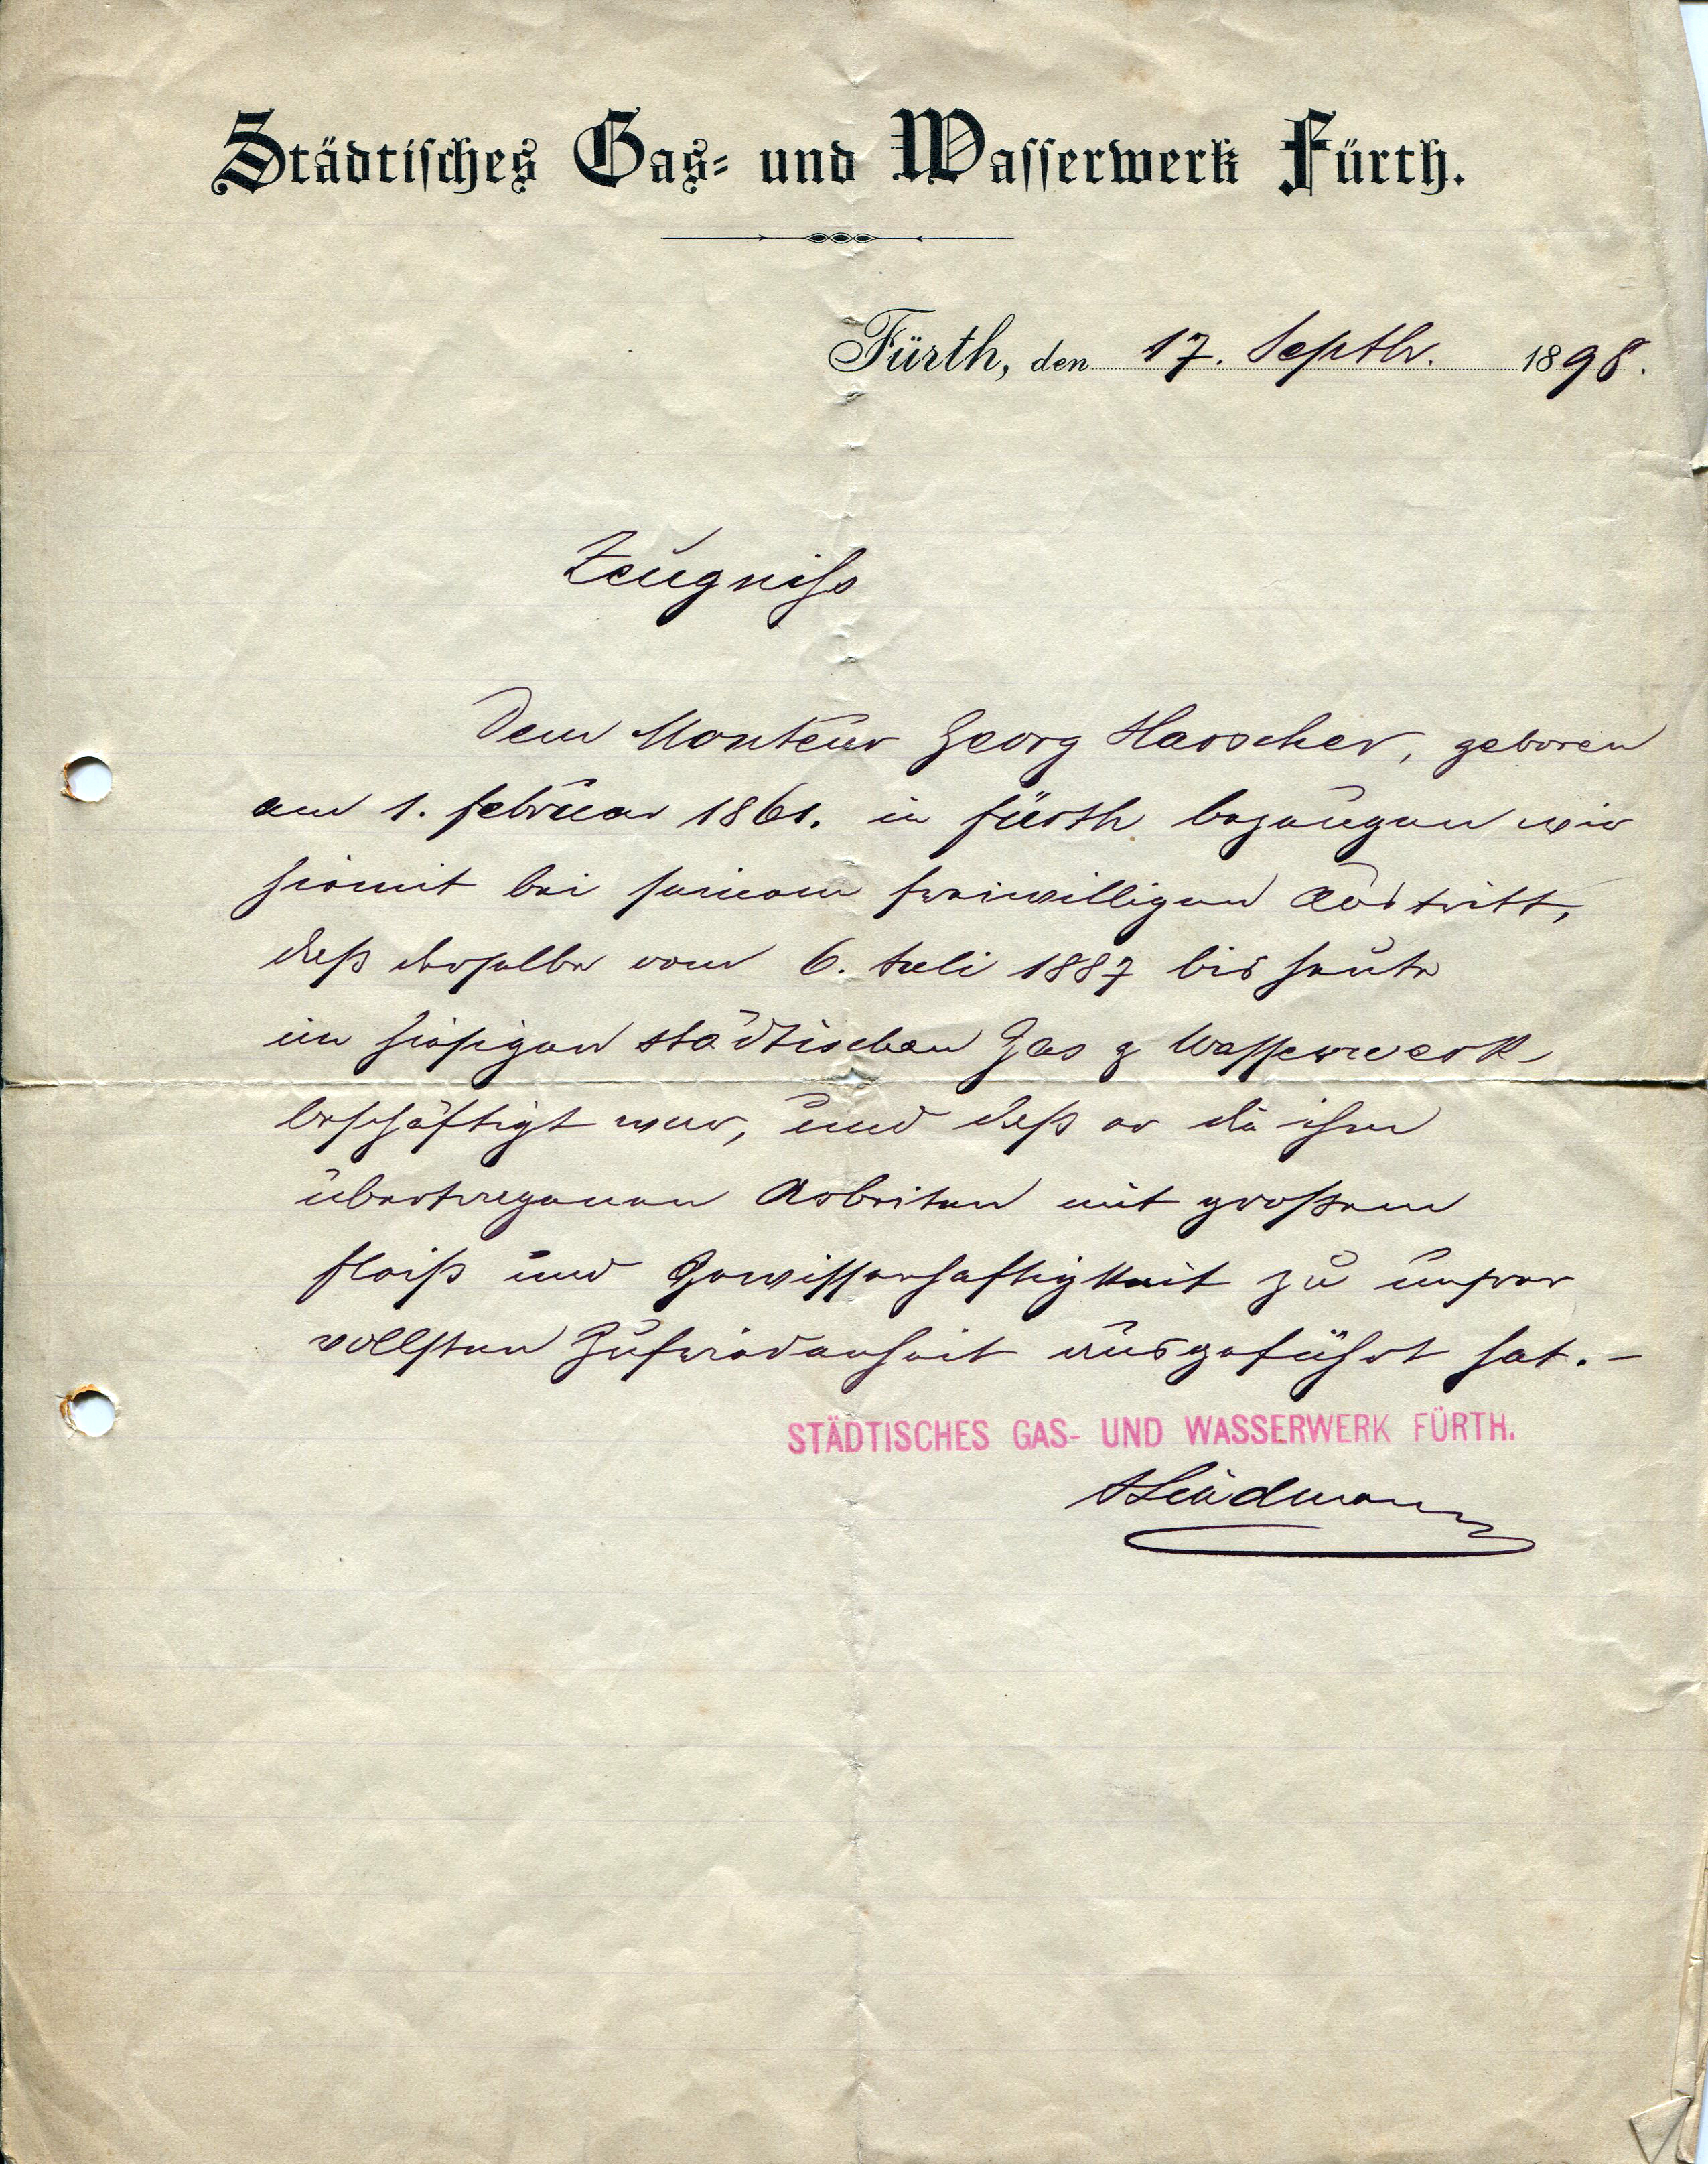 Städtisches Gas- und Wasserwerk Fürth.
Fürth, den 17. Septbr. 1898.
Zeugniß
Dem Monteur Georg Harscher, geboren
am 1. Februar 1861. in Fürth bezeugen wir
hiermit bei seinem freiwilligen Austritt,
daß derselbe vom 6. Juli 1887 bis heute
im hiesigen städtischen Gas & Wasserwerk
beschäftigt war, und daß er die ihm
übertragenen Arbeiten mit großem
Fleiß und Gewissenhaftigkeit zu unsrer
vollsten Zufriedenheit ausgeführt hat. –
STÄDTISCHES GAS- UND WASSERWERK FÜRTH.